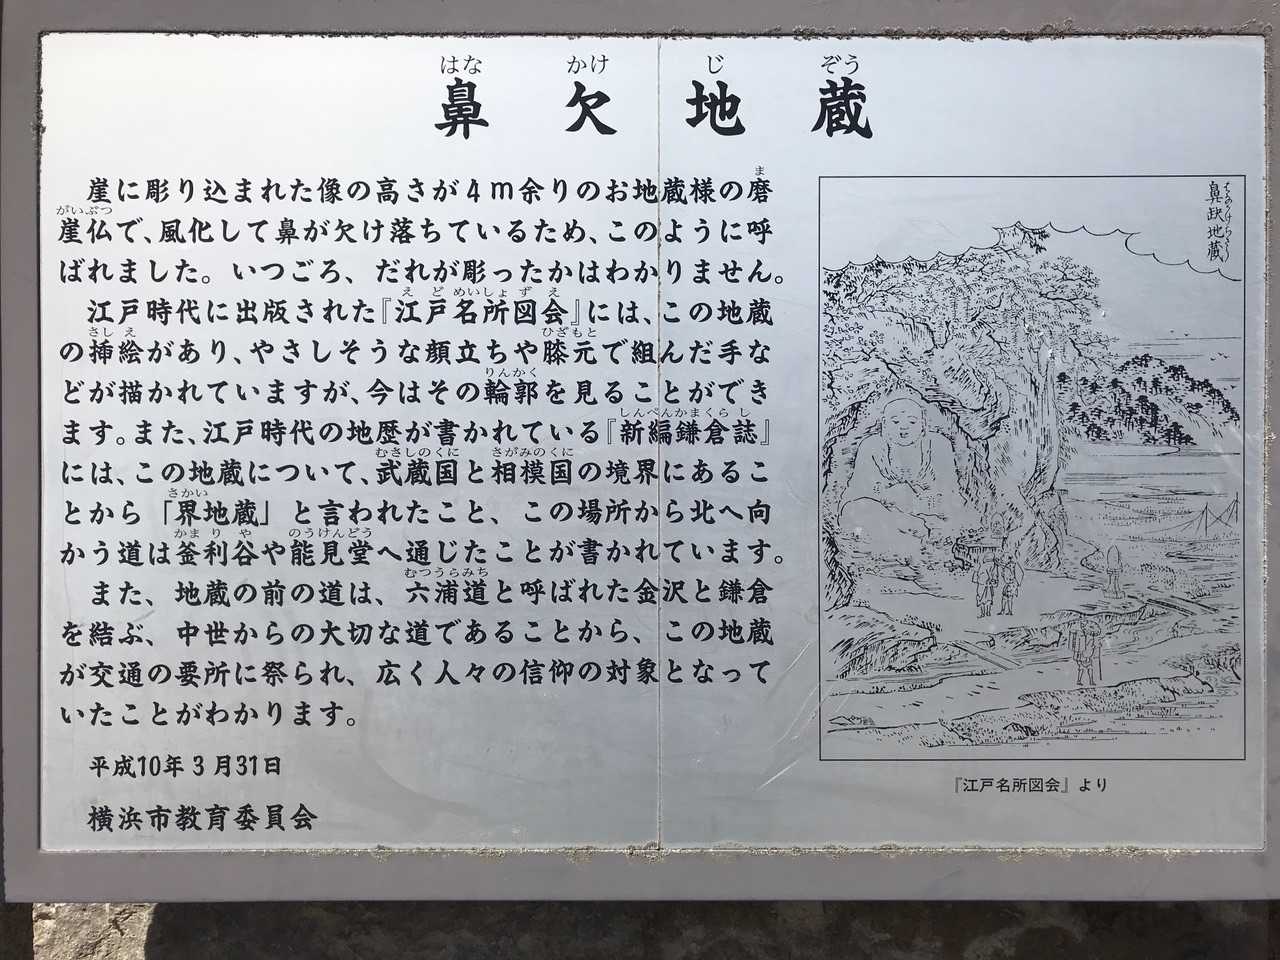 はな かけ じ ぞう
鼻欠地蔵
崖に彫り込まれた像の高さが4m余りのお地蔵様の磨
崖仏で、風化して鼻が欠け落ちているため、このように呼
ばれました。いつごろ、だれが彫ったかはわかりません。
江戸時代に出版された『江戸名所図会』には、この地蔵
の挿絵があり、やさしそうな顔立ちや膝元で組んだ手な
どが描かれていますが、今はその輪郭を見ることができ
ます。また、江戸時代の地歴が書かれている『新編鎌倉誌』
には、この地蔵について、武蔵国と相模国の境界にあるこ
とから「界地蔵」と言われたこと、この場所から北へ向
かう道は釜利谷や能見堂へ通じたことが書かれています。
また、地蔵の前の道は、六浦道と呼ばれた金沢と鎌倉
を結ぶ、中世からの大切な道であることから、この地蔵
が交通の要所に祭られ、広く人々の信仰の対象となって
いたことがわかります。
平成10年3月31日
横浜市教育委員会
鼻缺地蔵
『江戸名所図会』より